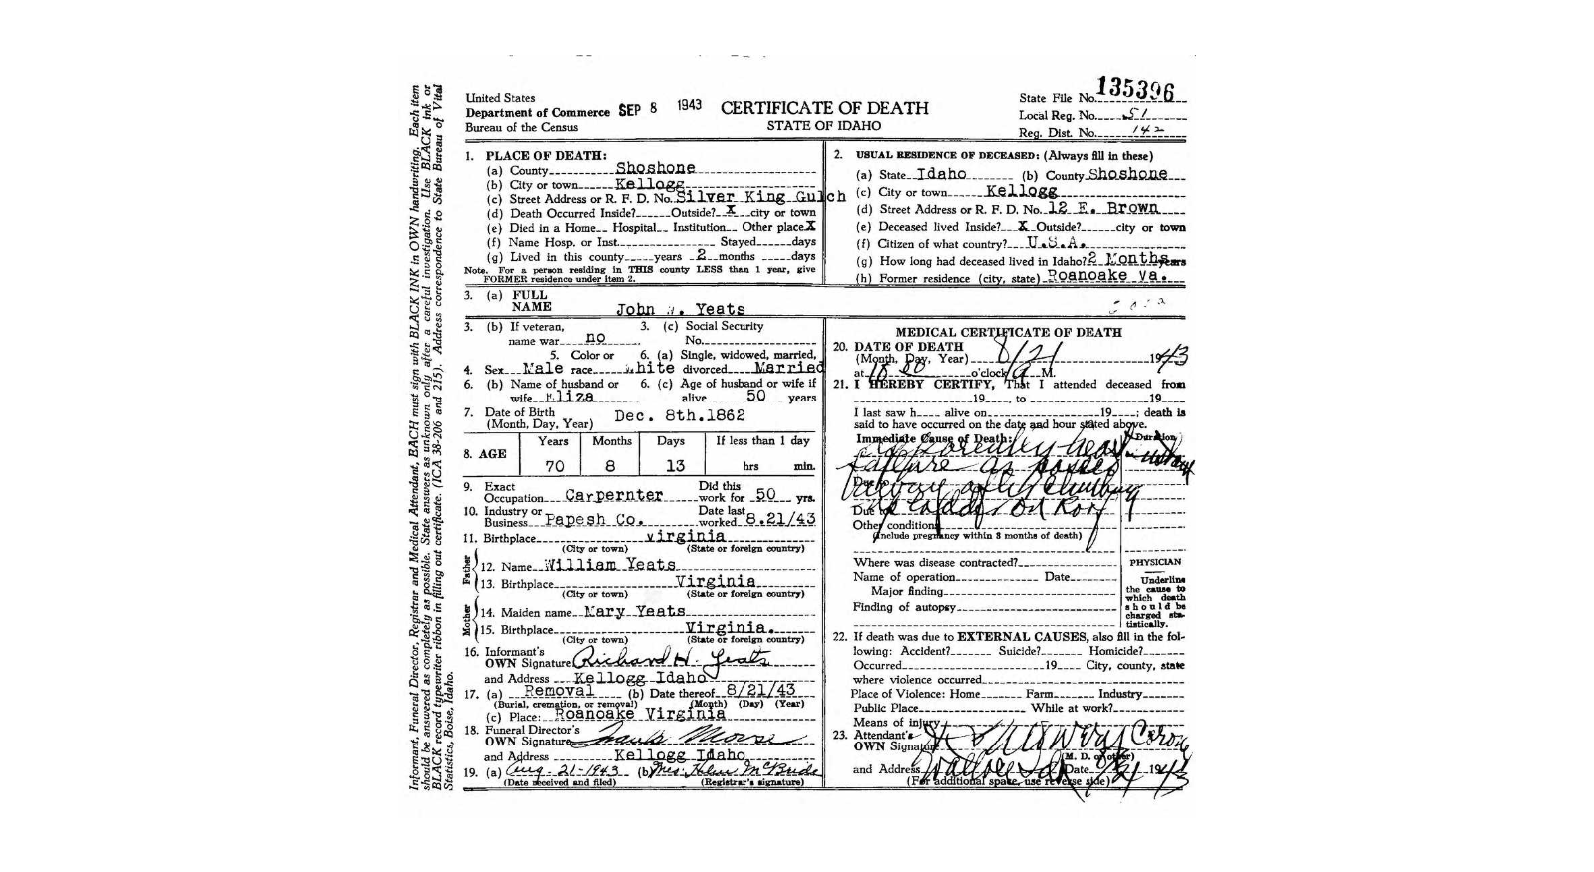 135396
United States
Department of Commerce SEP 8 1943 CERTIFICATE OF DEATH State File No.
Bureau of the Census STATE OF IDAHO Local Reg. No. 51
Reg. Dist. No. 142
1. PLACE OF DEATH:
(a) County Shoshone
(b) City or town Kellogg
(c) Street Address or R. F. D. No. Silver King Gulch
(d) Death Occurred Inside? Outside? X city or town
(e) Died in a Home Hospital Institution Other place X
(f) Name Hosp. or Inst. Stayed days
(g) Lived in this county years 2 months days
Note. For a person residing in THIS county LESS than 1 year, give
FORMER residence under item 2.
2. USUAL RESIDENCE OF DECEASED: (Always fill in these)
(a) State Idaho (b) County Shoshone
(c) City or town Kellogg
(d) Street Address or R. F. D. No. 12 E. Brown
(e) Deceased lived Inside? X Outside? city or town
(f) Citizen of what country? U.S.A.
(g) How long had deceased lived in Idaho? 2 Months years
(h) Former residence (city, state) Roanoake Va.
3. (a) FULL
NAME John W. Yeats
3. (b) If veteran, 3. (c) Social Security
name war no No.
5. Color or 6. (a) Single, widowed, married,
4. Sex Male race White divorced Married
6. (b) Name of husband or 6. (c) Age of husband or wife if
wife Eliza alive 50 years
7. Date of Birth
(Month, Day, Year) Dec. 8th.1862
8. AGE Years Months Days If less than 1 day
70 8 13 hrs min.
9. Exact Did this
Occupation Carpernter work for 50 yrs.
10. Industry or Date last
Business Papesh Co. worked 8.21/43
11. Birthplace Virginia
(City or town) (State or foreign country)
Father
12. Name William Yeats
13. Birthplace Virginia
(City or town) (State or foreign country)
Mother
14. Maiden name Mary Yeats
15. Birthplace Virginia.
(City or town) (State or foreign country)
16. Informant's
OWN Signature Richard H. Yeats
and Address Kellogg Idaho
17. (a) Removal (b) Date thereof 8/21/43
(Burial, cremation, or removal) (Month) (Day) (Year)
(c) Place: Roanoake Virginia
18. Funeral Director's
OWN Signature
and Address Kellogg Idaho
19. (a) Aug - 21-1943 (b) Mrs. Helen McBride
(Date received and filed) (Registrar's signature)
MEDICAL CERTIFICATE OF DEATH
20. DATE OF DEATH
(Month, Day, Year) 8/21 1943
at 10 00 o'clock a M.
21. I HEREBY CERTIFY, That I attended deceased from
19 , to 19
I last saw h alive on 19 ; death is
said to have occurred on the date and hour stated above.
Immediate Cause of Death: Duration
apparently heart
failure as passed
away after climbing
ladder on
Due to
Due to
Other conditions
(Include pregnancy within 3 months of death)
Where was disease contracted?
Name of operation Date
Major finding
Finding of autopsy
PHYSICIAN
Underline
the cause to
which death
should be
charged sta-
tistically.
22. If death was due to EXTERNAL CAUSES, also fill in the fol-
lowing: Accident? Suicide? Homicide?
Occurred 19 City, county, state
where violence occurred
Place of Violence: Home Farm Industry
Public Place While at work?
Means of injury
23. Attendant's
OWN Signature
(M. D. or other)
and Address Date 8/21 1943
(For additional space, use reverse side)
Informant, Funeral Director, Registrar and Medical Attendant, EACH must sign with BLACK INK in OWN handwriting. Each item
should be answered as completely as possible. State answers as unknown only after a careful investigation. Use BLACK ink or
BLACK record typewriter ribbon in filling out certificate. (ICA 38-206 and 215). Address correspondence to State Bureau of Vital
Statistics, Boise, Idaho.